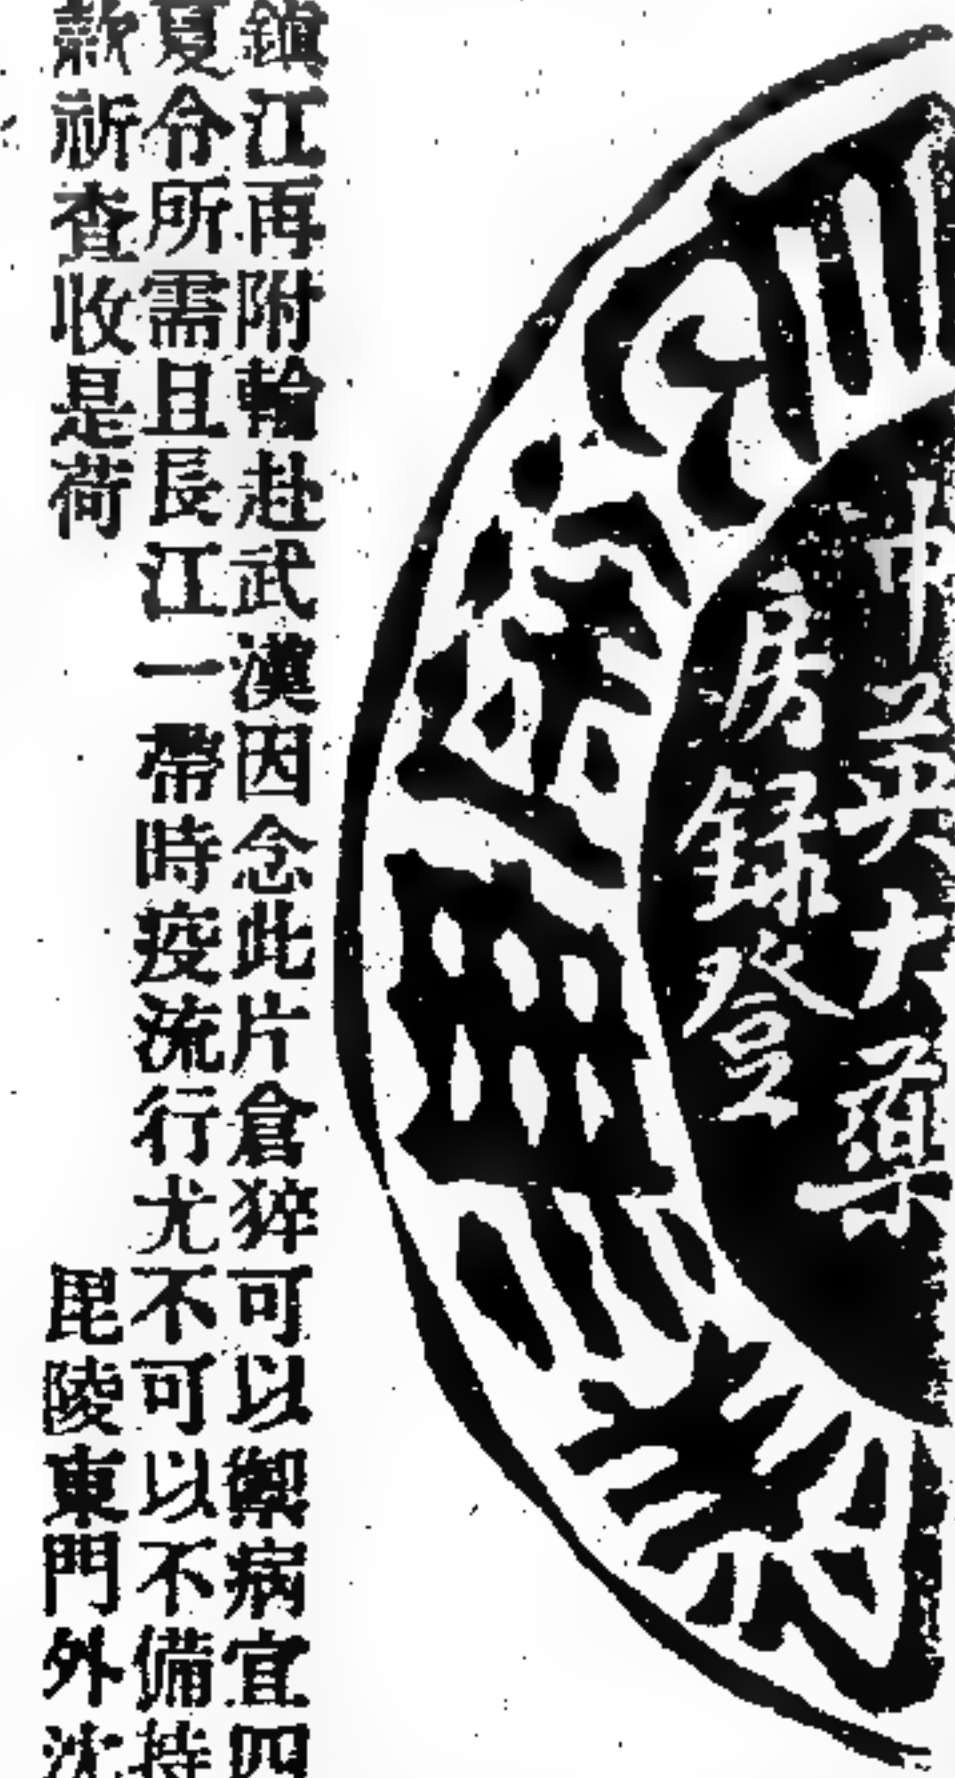 中英大藥
房錄登
鎮江再附輪赴武漢因念此片倉猝可以禦病宜四
夏令所需且長江一帶時疫流行尤不可以不備持
款祈查收是荷
毘陵東門外沈